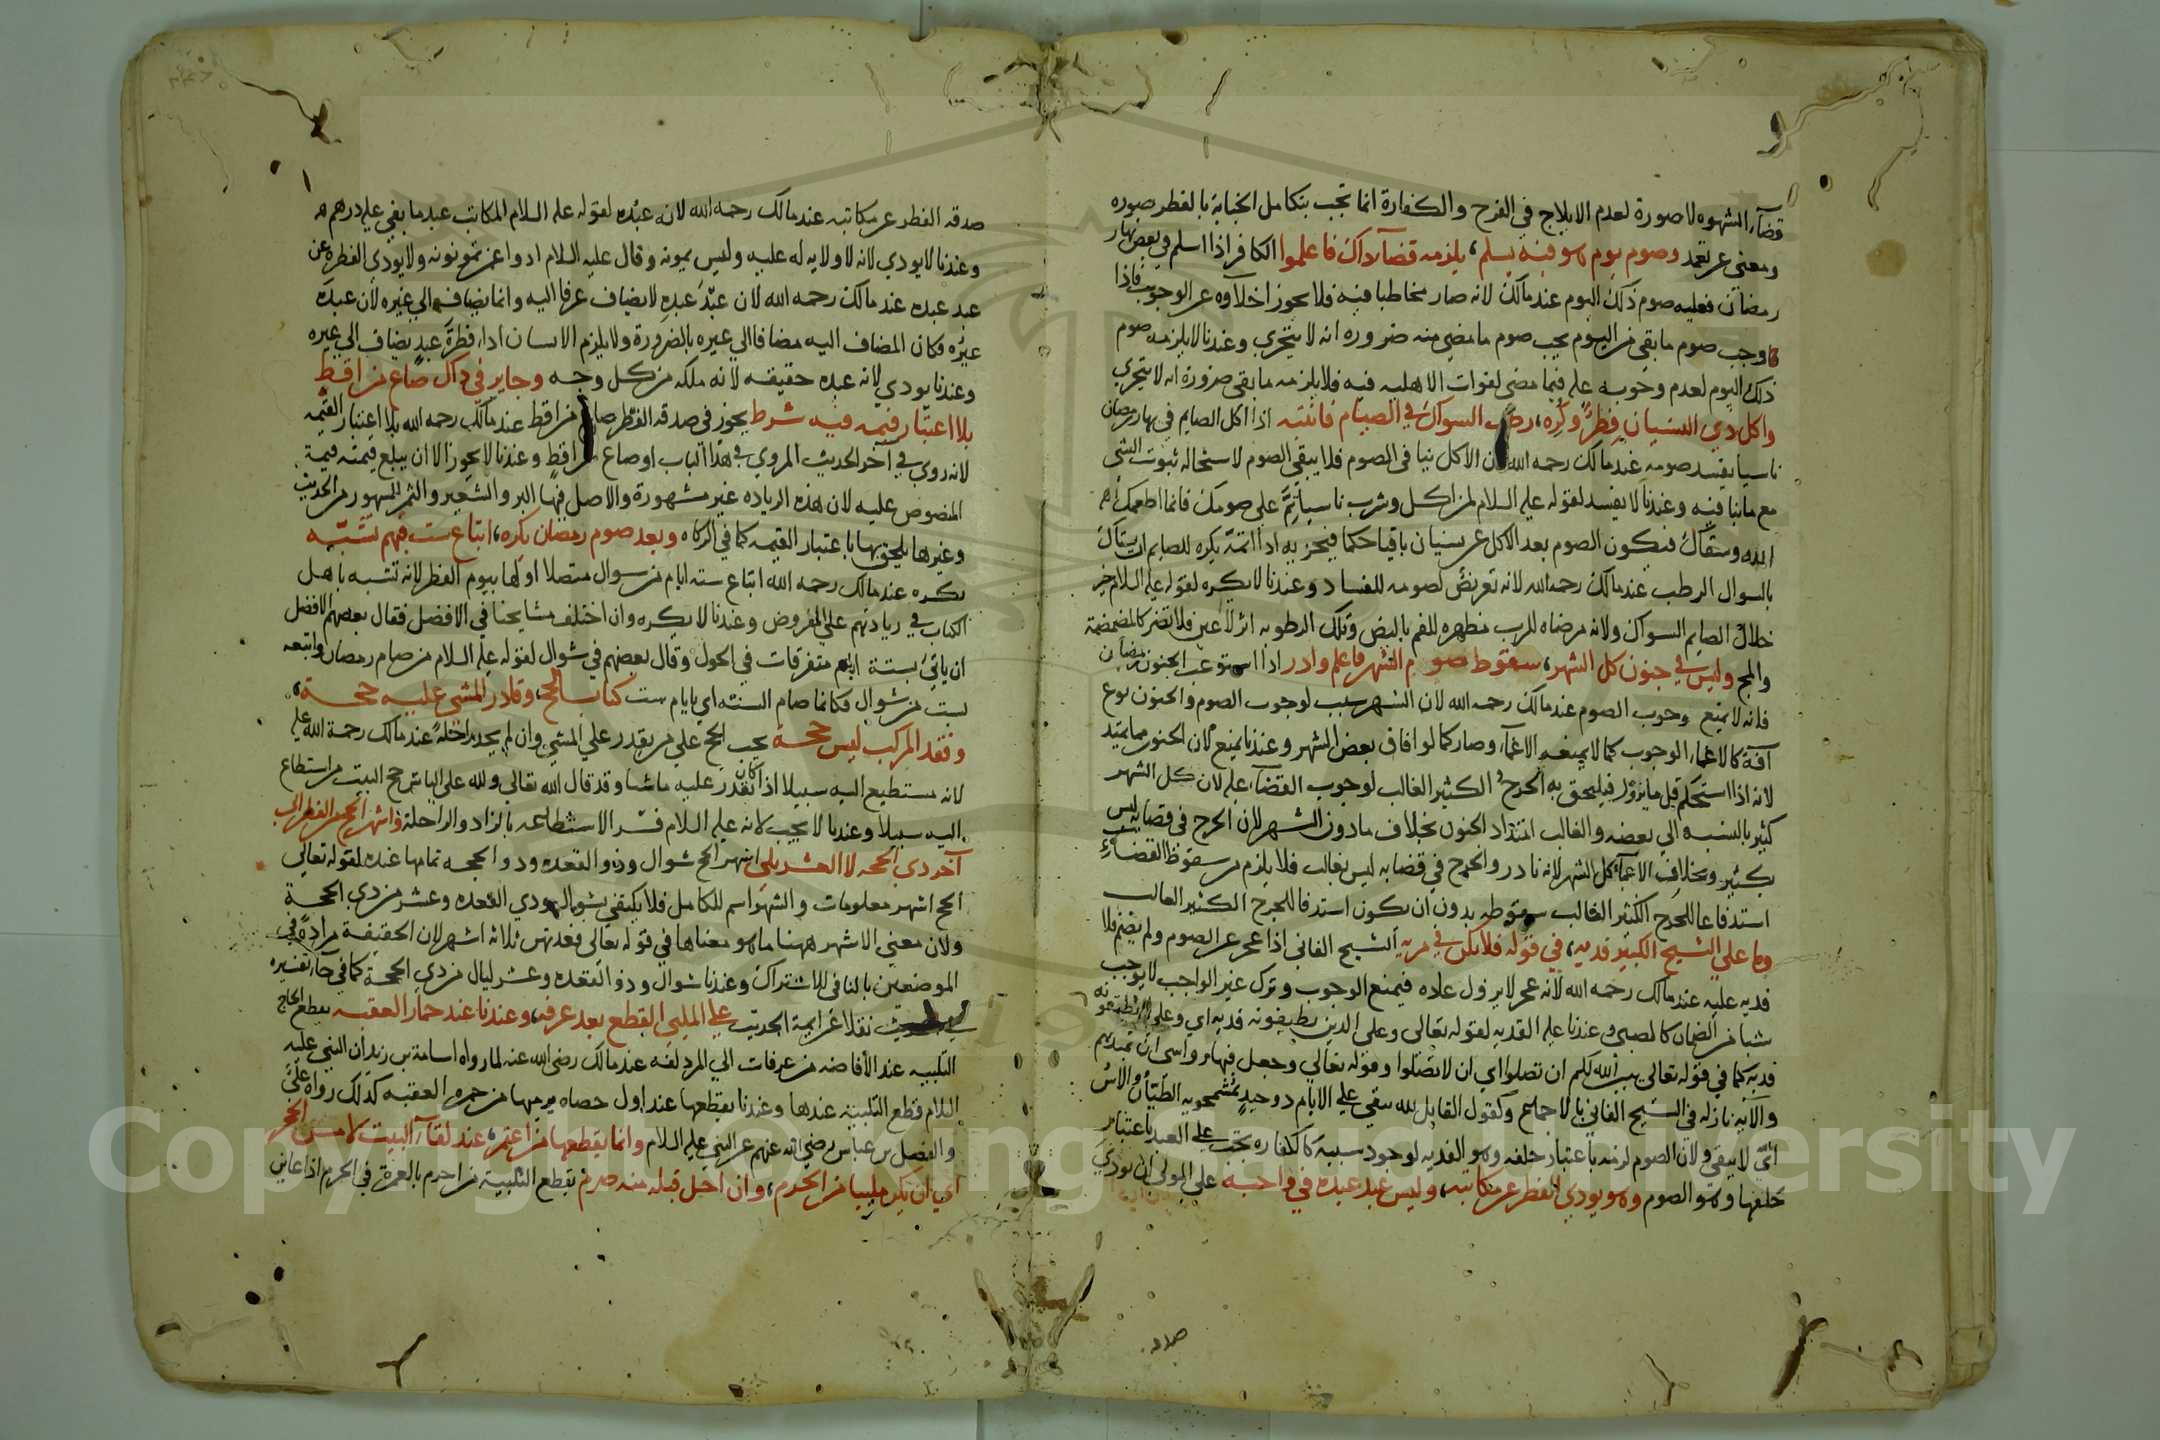 قضاء الشهوه لا صورة لعدم الايلاج في الفرج والكفارة انما تجب بتكامل الجناية بالفطر صوره
ومعنى عن تعمد وصوم يوم هو فيه يسلم، يلزمه قضآ ذاك فاعلموا الكافر اذا اسلم في بعض نهار
رمضان فعليه صوم ذلك اليوم عند مالك لانه صار مخاطبا فيه فلا يجوز اخلاوه عن الوجوب فاذا
وجب صوم ما بقي من اليوم يجب صوم ما مضى منه ضروره انه لا يتجزي وعندنا لا يلزمه صوم
ذلك اليوم لعدم وجوبه عليه فيما مضى لفوات الاهليه فيه فلا يلزمه ما بقي ضرورة انه لا يتجزي
واكل ذي النسيان فطر وكره، رطب السواك في الصيام فانتبه اذا اكل الصايم في نهار رمضان
ناسيا يفسد صومه عند مالك رحمه الله لان الاكل ينافي الصوم فلا يبقى الصوم لاستحاله ثبوت الشي
مع ما ينافيه وعندنا لا يفسد لقوله عليه السلام لمن اكل وشرب ناسيا تم على صومك فانما اطعمك
الله وسقاك فيكون الصوم بعد الاكل عن نسيان باقيا حكما فيجزيه اذا اتمه يكره للصايم ان يستاك
بالسوال الرطب عند مالك رحمه الله لانه تعريض لصومه للفساد وعندنا لا يكره لقوله عليه السلام خير
خلال الصايم السواك ولانه مرضاه للرب مطهره للفم بالنص وتلك الرطوبه اثر لا عين فلا تضر كالمضمضة
والمج وليس في جنون كل الشهر، سقوط صوم الشهر فاعلم وادر اذا استوعب الجنون رمضان
فانه لا يمنع وجوب الصوم عند مالك رحمه الله لان الشهر سبب لوجوب الصوم والجنون نوع
آفة كالاغماء الوجوب كما لا يمنعه الاغماء وصار كما لو افاق بعض الشهر وعندنا يمنع لان الجنون مما يمتد
لانه اذا استحكم قل ما يزول فيلحق به الحرج الكثير الغالب لوجوب القضآء عليه لان كل الشهر
كثير بالنسبه الي بعضه والغالب امتداد الجنون بخلاف ما دون الشهر لان الحرج في قضايه ليس
بكثير وبخلاف الاغمآء كل الشهر لانه نادر والحرج في قضايه ليس بغالب فلا يلزم من سقوط القضآء
استدفاعا للحرج الكثير الغالب سقوطه بدون ان يكون استدفاعا للحرج الكثير الغالب
وما علي الشيخ الكبير فديه، في قوله فلا تكن في مريه الشيخ الفاني اذا عجز عن الصوم ولم يصم فلا
فديه عليه عند مالك رحمه الله لانه عجز لا يزول عاده فيمنع الوجوب وترك غير الواجب لا يوجب
شيا من الضمان كالصبي وعندنا عليه الفديه لقوله تعالى وعلى الذين يطيقونه فديه اي وعلى الذين لا يطيقونه
فديه كما في قوله تعالى يبين الله لكم ان تضلوا اي ان لا تضلوا وقوله تعالي وجعل فيها رواسي ان تميد بكم
والآية نازله في الشيخ الفاني بالاجماع وكقول القايل لله يبقي على الايام ذو حيد بمشمخر به الظيان والاس
اي لا يبقي ولان الصوم لزمه باعتبار خلفه وهو الفديه لوجود سببه كالكفاره تجب على العبد باعتبار
خلفها وهو الصوم وهو يودي الفطر عن مكاتبه، وليس عبد عبده في واجبه على المولى ان يودي
صدقه الفطر عن مكاتبه عند مالك رحمه الله لانه عبده لقوله عليه السلام المكاتب عبد ما بقي عليه درهم
وعندنا لا يودي لانه لا ولايه له عليه وليس يمونه وقال عليه السلام ادوا عمن تمونونه ولا يودي الفطره عن
عبد عبده عند مالك رحمه الله لان عبد عبده لا يضاف عرفا اليه وانما يضاف الي غيره لان عبده
غيره فكان المضاف اليه مضافا الي غيره بالضرورة ولا يلزم الانسان اداء فطرة عبد يضاف الي غيره
وعندنا يودي لانه عبده حقيقه لانه ملكه من كل وجه وجايز في ذاك صاع من اقط
بلا اعتبار قيمه فيه شرط يجوز في صدقه الفطر صاع من اقط عند مالك رحمه الله بلا اعتبار القيمه
لانه روي في آخر الحديث المروي في هذا الباب او صاع من اقط وعندنا لا يجوز الا ان يبلغ قيمته قيمة
المنصوص عليه لان هذه الزياده غير مشهورة والاصل فيها البر والشعير والتمر المشهور من الحديث
وغيرها يلحق بها باعتبار القيمه كما في الزكاه وبعد صوم رمضان يكره، اتباع ست فهم تشبه
يكره عند مالك رحمه الله اتباع سته ايام من شوال متصلا اولها بيوم الفطر لانه تشبه باهل
الكتاب في زيادتهم على المفروض وعندنا لا يكره وان اختلف مشايخنا في الافضل فقال بعضهم الافضل
ان ياتي بستة ايام متفرقات في الحول وقال بعضهم في شوال لقوله عليه السلام من صام رمضان واتبعه
بست من شوال فكانما صام السنه اي بايام ست كتاب الحج، وقادر المشي عليه حجة،
وفقد المركب ليس حجة يجب الحج على من يقدر على المشي وان لم يجد راحلة عند مالك رحمة الله عليه
لانه مستطيع اليه سبيلا اذا كان يقدر عليه ماشيا وقد قال الله تعالى ولله على الناس حج البيت من استطاع
اليه سبيلا وعندنا لا يجب لانه عليه السلام فسر الاستطاعه بالزاد والراحلة واشهر الحج من الفطر الي
آخر ذي الحجه لا العشر يلي اشهر الحج شوال وذو القعده وذو الحجه تمامها عنده لقوله تعالي
الحج اشهر معلومات والشهر اسم للكامل فلا يكتفي بشوال وذي القعده وعشر من ذي الحجة
ولان معني الاشهر ههنا ما هو معناها في قوله تعالى فعدتهن ثلاثه اشهر لان الحقيقة مرادة في
الموضعين بالنافي للاشتراك وعندنا شوال وذو القعده وعشر ليال من ذي الحجة كما في جاء تفسيره
في الحديث نقلا عن ايمة الحديث على الملبي القطع بعد عرفه، وعندنا عند جمار العقبه يقطع الحاج
التلبيه عند الافاضه من عرفات الي المزدلفه عند مالك رضى الله عنه لما رواه اسامة بن زيد ان النبي عليه
السلام قطع التلبية عندها وعندنا يقطعها عند اول حصاه يرميها من جمره العقبه كذلك رواه علي
والفضل بن عباس رضي الله عنهم عن النبي عليه السلام وانما يقطعها من اعتمر، عند لقآء البيت لا مس الحجر
اي ان يكن ملبيا من الحرم، وان احل قبله منه صرم يقطع التلبية من احرم بالعمرة في الحرم اذا عاين
Copyright © King Saud University